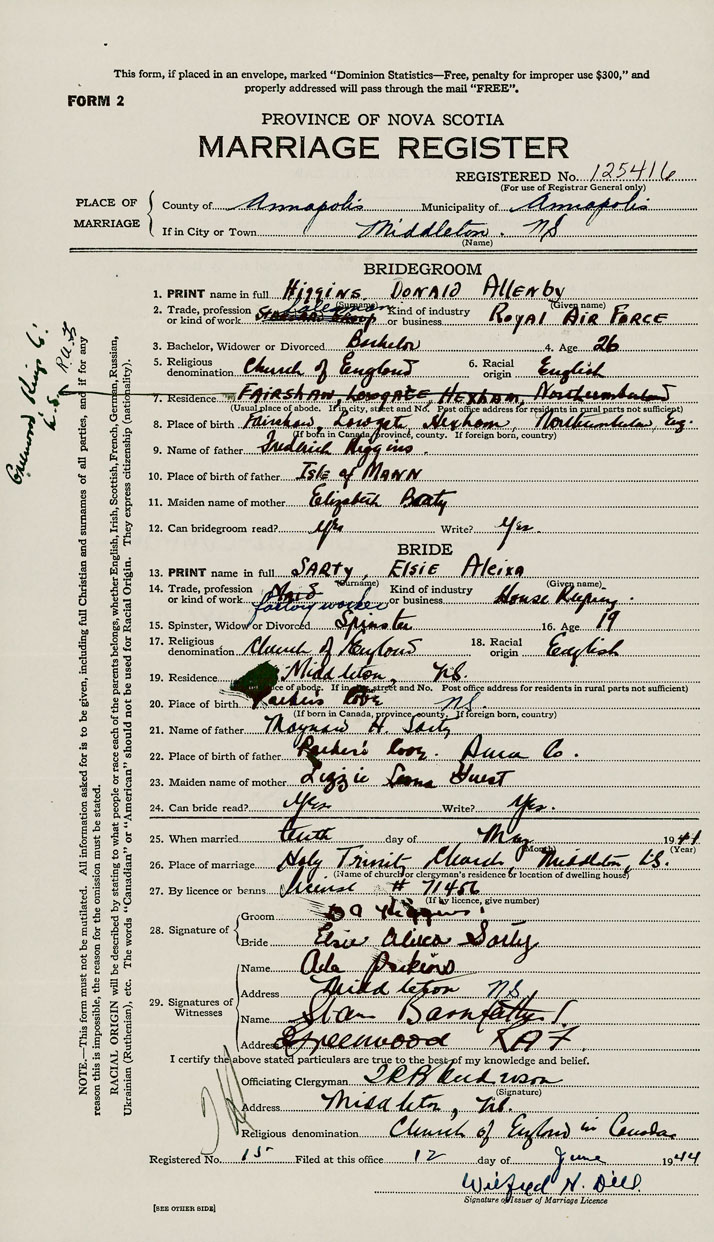 This form, if placed in an envelope, marked "Dominion Statistics—Free, penalty for improper use $300," and
properly addressed will pass through the mail "FREE".
FORM 2
PROVINCE OF NOVA SCOTIA
MARRIAGE REGISTER
REGISTERED No. 125416
(For use of Registrar General only)
PLACE OF MARRIAGE
County of Annapolis Municipality of Annapolis
If in City or Town Middleton. NS
(Name)
BRIDEGROOM
1. PRINT name in full Higgins, Donald Allenby
(Surname) (Given name)
2. Trade, profession or kind of work Salesman Kind of industry or business Royal Air Force
3. Bachelor, Widower or Divorced Bachelor 4. Age 26
5. Religious denomination Church of England 6. Racial origin English
7. Residence Fairshaw, Lowgate, Hexham, Northumberland
(Usual place of abode. If in city, street and No. Post office address for residents in rural parts not sufficient)
8. Place of birth Fairshaw, Lowgate, Hexham, Northumberland, Eng.
(If born in Canada, province, county. If foreign born, country)
9. Name of father Fredrick Higgins.
10. Place of birth of father Isle of Mann
11. Maiden name of mother Elizabeth Beaty
12. Can bridegroom read? Yes Write? Yes.
BRIDE
13. PRINT name in full Sarty, Elsie Aleixa
(Surname) (Given name)
14. Trade, profession or kind of work factory worker Kind of industry or business House Keeping.
15. Spinster, Widow or Divorced Spinster 16. Age 19
17. Religious denomination Church of England 18. Racial origin English
19. Residence Middleton, N.S.
(Usual place of abode. If in city, street and No. Post office address for residents in rural parts not sufficient)
20. Place of birth Parkers Cove N.S.
(If born in Canada, province, county. If foreign born, country)
21. Name of father Maynard H. Sarty
22. Place of birth of father Parker's Cove. Anna Co.
23. Maiden name of mother Lizzie Leona Guest
24. Can bride read? Yes Write? Yes.
25. When married tenth day of May 1941
(Month) (Year)
26. Place of marriage Holy Trinity Church, Middleton, N.S.
(Name of church or clergyman's residence or location of dwelling house)
27. By licence or banns license # 71456
(If by licence, give number)
28. Signature of
Groom D A Higgins.
Bride Elsie Aleixa Sarty
29. Signatures of Witnesses
Name Ada Parkins
Address Middleton NS
Name Stan Barnfather
Address Greenwood RAF
I certify the above stated particulars are true to the best of my knowledge and belief.
Officiating Clergyman
(Signature)
Address Middleton, N.S.
Religious denomination Church of England in Canada
Registered No. 15 Filed at this office 12 day of June 1944
Wilfred H. Dill.
Signature of Issuer of Marriage Licence
[SEE OTHER SIDE]
Greenwood Kings C.
N.S. R.A.F
NOTE.—This form must not be mutilated. All information asked for is to be given, including full Christian and surnames of all parties, and if for any
reason this is impossible, the reason for the omission must be stated.
RACIAL ORIGIN will be described by stating to what people or race each of the parents belongs, whether English, Irish, Scottish, French, German, Russian,
Ukrainian (Ruthenian), etc. The words "Canadian" or "American" should not be used for Racial Origin. They express citizenship (nationality).